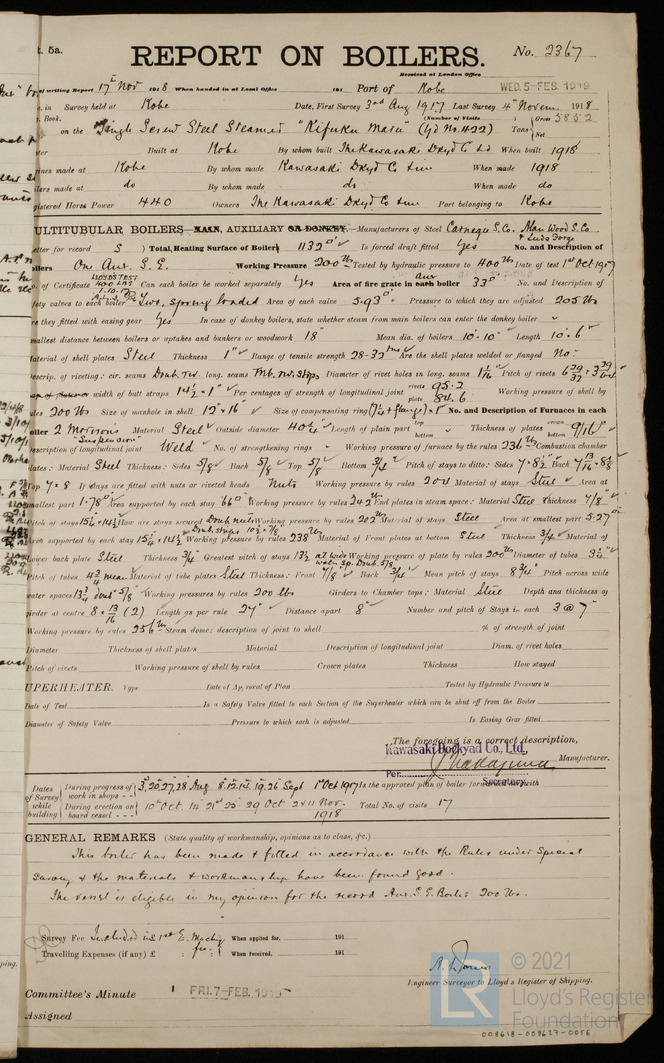 t. 5a.
REPORT ON BOILERS.
No. 2367
Received at London Office
of writing Report 17th Nov 1918 When handed in at Local Office 191 Port of Kobe WED. 5-FEB. 1919
o. in Survey held at Kobe Date, First Survey 3rd Aug 1917 Last Survey 4th Novem. 1918
Book. (Number of Visits
on the Single Screw Steel Steamer "Kifuku Maru" (Yd No. 422) Tons Gross 5852 Net
Built at Kobe By whom built The Kawasaki Dkyd Co Ld When built 1918
ines made at Kobe By whom made Kawasaki Dkyd Co Lim When made 1918
ilers made at do By whom made do When made do
gistered Horse Power 440 Owners The Kawasaki Dkyd Co Lim Port belonging to Kobe
ULTITUBULAR BOILERS MAIN, AUXILIARY OR DONKEY. Manufacturers of Steel Carnegie S. Co. Alan Wood S. Co.
& Luds Forge
etter for record S Total Heating Surface of Boilers 1132□' Is forced draft fitted Yes No. and Description of
oilers One Aux. S. E. Working Pressure 200 lbs Tested by hydraulic pressure to 400 lbs Date of test 1 Oct 1917
LLOYD'S TEST
400 LBS
1.10.17
of Certificate Can each boiler be worked separately Yes Area of fire grate in each boiler 33□' No. and Description of
fety valves to each boiler Two, spring loaded Area of each valve 5.93□" Pressure to which they are adjusted 205 lbs
re they fitted with easing gear Yes In case of donkey boilers, state whether steam from main boilers can enter the donkey boiler
mallest distance between boilers or uptakes and bunkers or woodwork 18" Mean dia. of boilers 10'-10" Length 10'-6"
Material of shell plates Steel Thickness 1" Range of tensile strength 28-32 tons Are the shell plates welded or flanged No.
Descrip. of riveting: cir. seams Doub. riv. long. seams Diameter of rivet holes in long. seams 1 1/16 Pitch of rivets 6 29/32
width of butt straps 14 1/2 × 1" Per centages of strength of longitudinal joint rivets 95.2 plate 84.6 Working pressure of shell by
ules 200 lbs Size of manhole in shell 12" × 16" Size of compensating ring (7 1/4 + flange) × 1" No. and Description of Furnaces in each
oiler 2 Morisons "Suspension" Material Steel Outside diameter 40 1/4 Length of plain part top bottom Thickness of plates crown bottom 9/16"
Description of longitudinal joint Weld No. of strengthening rings Working pressure of furnace by the rules 236 lbs Combustion chamber
lates: Material Steel Thickness: Sides 5/8 Back 5/8 Top 5/8 Bottom 3/4 Pitch of stays to ditto: Sides 7 × 8 1/2 Back 7 13/16 × 8 5/8
Top 7 × 8 If stays are fitted with nuts or riveted heads Nuts Working pressure by rules 200 Material of stays Steel Area at
smallest part 1.78□" Area supported by each stay 66□" Working pressure by rules 242 lbs End plates in steam space: Material Steel Thickness 7/8"
Pitch of stays 15 1/4 × 14 1/2 How are stays secured Doub. nuts Working pressure by rules 202 lbs Material of stays Steel Area at smallest part 5.27□"
Area supported by each stay 15 1/4 × 14 1/2 Working pressure by rules 238 lbs Material of Front plates at bottom Steel Thickness 3/4" Material of
Lower back plate Steel Thickness 3/4" Greatest pitch of stays 13 1/2 at wide water sp. Doub. 5/8 Working pressure of plate by rules 200 lbs Diameter of tubes 3 1/4"
Pitch of tubes 4 3/4 mean Material of tube plates Steel Thickness: Front 7/8 Back 3/4" Mean pitch of stays 8 3/4" Pitch across wide
water spaces 13 3/4 doub. 5/8" Working pressures by rules 200 lbs Girders to Chamber tops: Material Steel Depth and thickness of
girder at centre 8 × 13/16 (2) Length as per rule 27" Distance apart 8" Number and pitch of Stays in each 3 @ 7"
Working pressure by rules 256 lbs Steam dome: description of joint to shell % of strength of joint
Diameter Thickness of shell plates Material Description of longitudinal joint Diam. of rivet holes
Pitch of rivets Working pressure of shell by rules Crown plates Thickness How stayed
UPERHEATER. Type Date of Approval of Plan Tested by Hydraulic Pressure to
Date of Test Is a Safety Valve fitted to each Section of the Superheater which can be shut off from the Boiler
Diameter of Safety Valve Pressure to which each is adjusted Is Easing Gear fitted
The foregoing is a correct description,
Kawasaki Dockyad Co., Ltd.,
Manufacturer.
Per Secretary
Dates of Survey while building
During progress of work in shops - - 3, 20, 27, 28 Aug 8. 12. 14. 19. 26 Sept 1st Oct 1917 Is the approved plan of boiler forwarded herewith
During erection on board vessel - - - 10th Oct. 14 21st 25 29 Oct 2 & 11 Nov. 1918 Total No. of visits 17
GENERAL REMARKS (State quality of workmanship, opinions as to class, &c.)
This boiler has been made & fitted in accordance with the Rules under Special
Survey & the materials & workmanship have been found good.
The vessel is eligible in my opinion for the record Aux. S. E. Boiler 200 lbs.
Survey Fee Included in £ 1st E. Machy When applied for, 191
Travelling Expenses (if any) £ : fee : When received, 191
Engineer Surveyor to Lloyd's Register of Shipping.
Committee's Minute FRI. 7-FEB. 1919
Assigned
© 2021
Lloyd's Register
Foundation
LR
008618-008627-0056